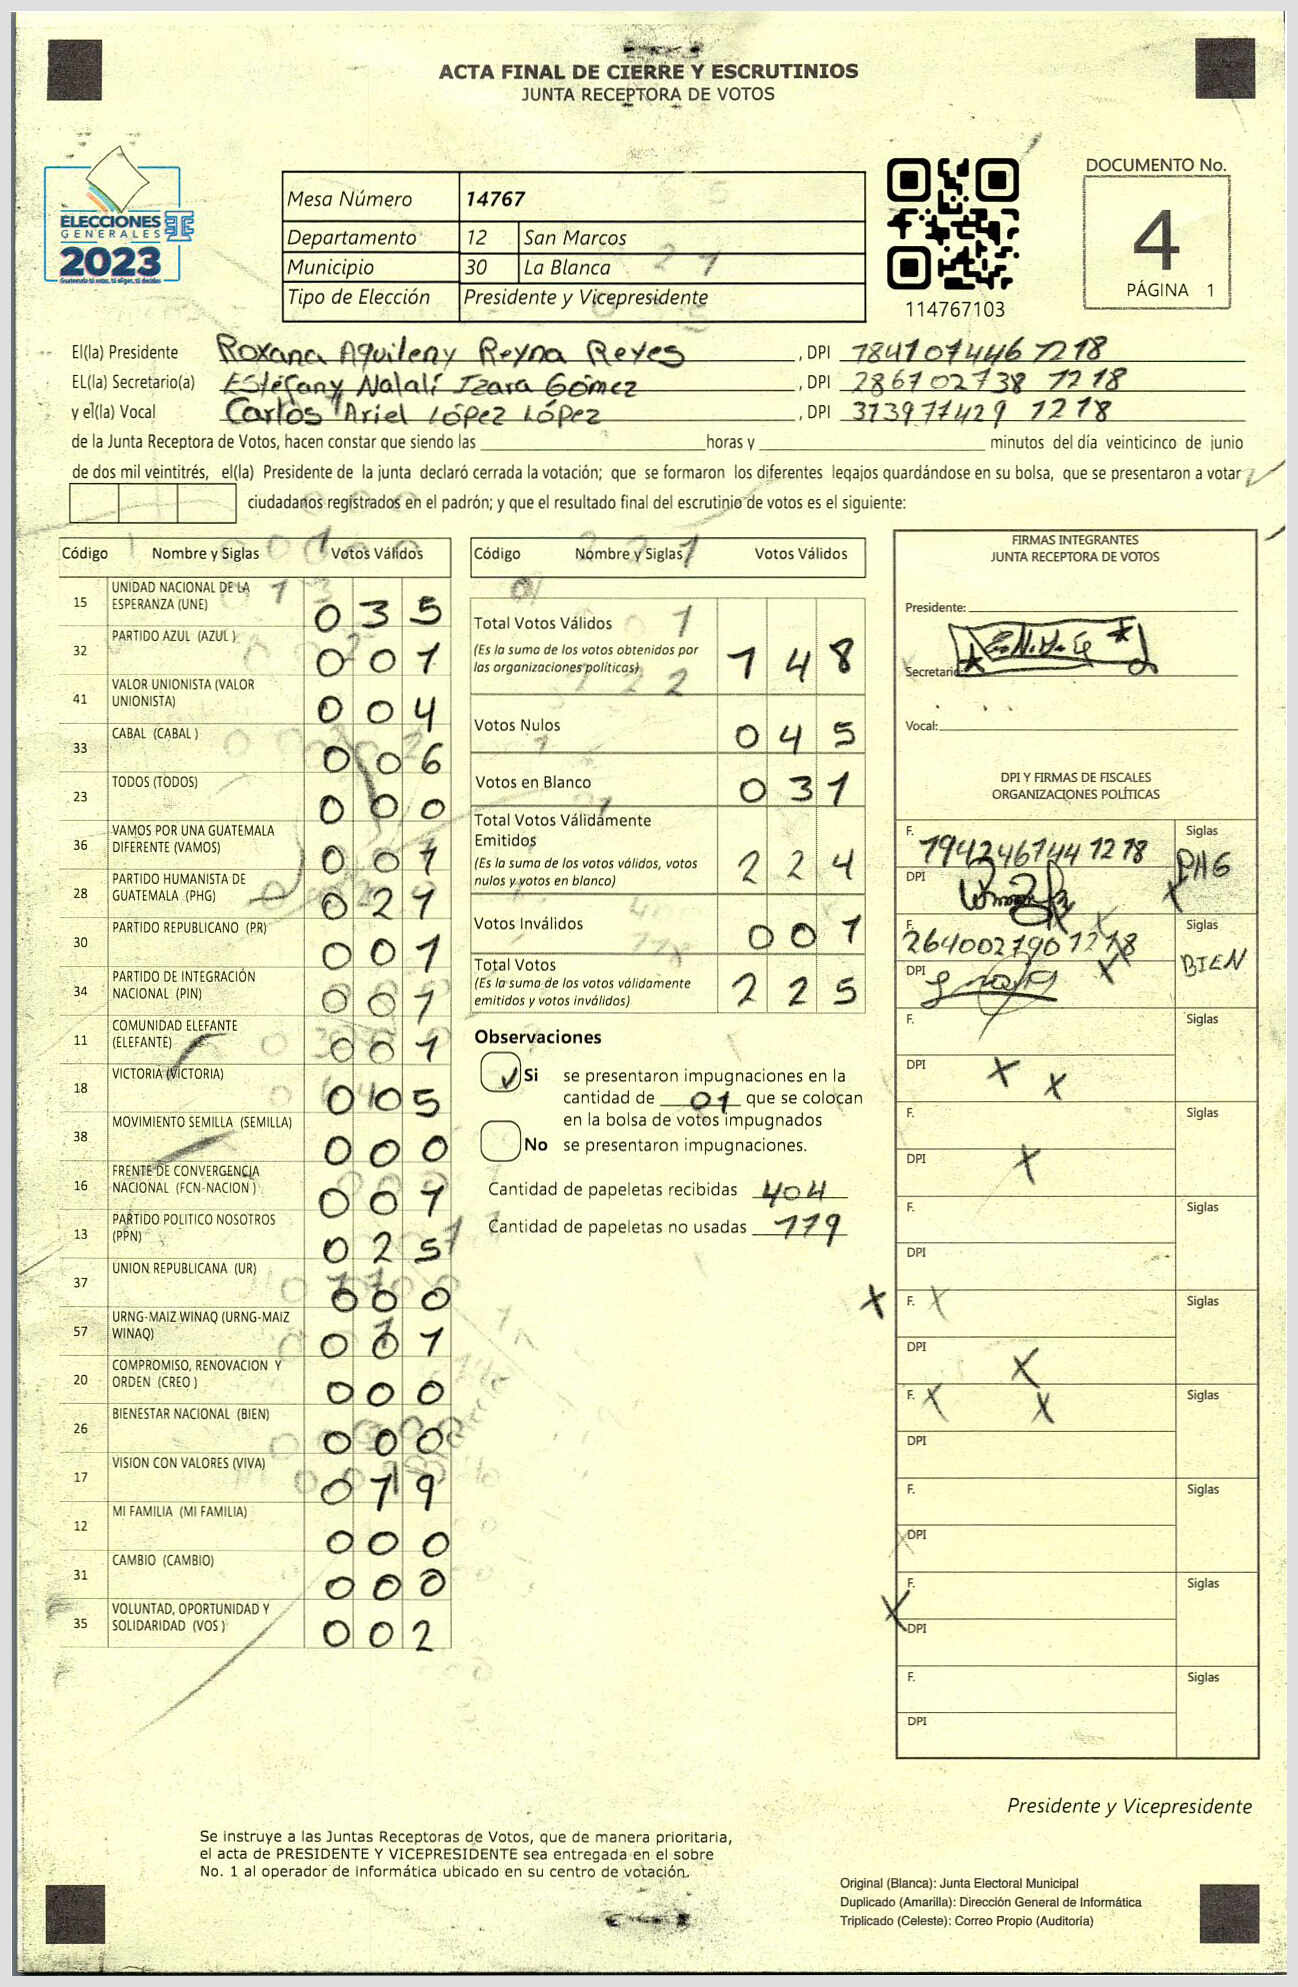 ACTA FINAL DE CIERRE Y ESCRUTINIOS
JUNTA RECEPTORA DE VOTOS
ELECCIONES
GENERALES
2023
Mesa Número 14767
Departamento 12 San Marcos
Municipio 30 La Blanca
Tipo de Elección Presidente y Vicepresidente
114767103
DOCUMENTO No.
4
PÁGINA 1
El(la) Presidente Roxana Aquileny Reyna Reyes, DPI 1841074461218
EL(la) Secretario(a) Estéfany Nalalí Izara Gómez, DPI 2867027381218
y el(la) Vocal Carlos Ariel López López, DPI 3139774291218
de la Junta Receptora de Votos, hacen constar que siendo las horas y minutos del día veinticinco de junio
de dos mil veintitrés, el(la) Presidente de la junta declaró cerrada la votación; que se formaron los diferentes legajos guardándose en su bolsa, que se presentaron a votar
ciudadanos registrados en el padrón; y que el resultado final del escrutinio de votos es el siguiente:
Código Nombre y Siglas Votos Válidos
15 UNIDAD NACIONAL DE LA ESPERANZA (UNE) 035
32 PARTIDO AZUL (AZUL ) 001
41 VALOR UNIONISTA (VALOR UNIONISTA) 004
33 CABAL (CABAL ) 006
23 TODOS (TODOS) 000
36 VAMOS POR UNA GUATEMALA DIFERENTE (VAMOS) 001
28 PARTIDO HUMANISTA DE GUATEMALA (PHG) 021
30 PARTIDO REPUBLICANO (PR) 001
34 PARTIDO DE INTEGRACIÓN NACIONAL (PIN) 001
11 COMUNIDAD ELEFANTE (ELEFANTE) 001
18 VICTORIA (VICTORIA) 005
38 MOVIMIENTO SEMILLA (SEMILLA) 000
16 FRENTE DE CONVERGENCIA NACIONAL (FCN-NACION ) 001
13 PARTIDO POLITICO NOSOTROS (PPN) 025
37 UNION REPUBLICANA (UR) 000
57 URNG-MAIZ WINAQ (URNG-MAIZ WINAQ) 0 1
20 COMPROMISO, RENOVACION Y ORDEN (CREO ) 000
26 BIENESTAR NACIONAL (BIEN) 000
17 VISION CON VALORES (VIVA) 019
12 MI FAMILIA (MI FAMILIA) 000
31 CAMBIO (CAMBIO) 000
35 VOLUNTAD, OPORTUNIDAD Y SOLIDARIDAD (VOS ) 002
Código Nombre y Siglas Votos Válidos
Total Votos Válidos 148
(Es la suma de los votos obtenidos por
las organizaciones políticas)
Votos Nulos 045
Votos en Blanco 031
Total Votos Válidamente
Emitidos 224
(Es la suma de los votos válidos, votos
nulos y votos en blanco)
Votos Inválidos 001
Total Votos 225
(Es la suma de los votos válidamente
emitidos y votos inválidos)
Observaciones
Si se presentaron impugnaciones en la
cantidad de 01 que se colocan
en la bolsa de votos impugnados
No se presentaron impugnaciones.
Cantidad de papeletas recibidas 404
Cantidad de papeletas no usadas 179
FIRMAS INTEGRANTES
JUNTA RECEPTORA DE VOTOS
Presidente:
Secretario
Vocal:
DPI Y FIRMAS DE FISCALES
ORGANIZACIONES POLÍTICAS
F. 1942467441218 Siglas
DPI PHG
F. 2640027901218 Siglas
DPI BIEN
F. Siglas
DPI
F. Siglas
DPI
F. Siglas
DPI
F. Siglas
DPI
F. Siglas
DPI
F. Siglas
DPI
F. Siglas
DPI
F. Siglas
DPI
Presidente y Vicepresidente
Se instruye a las Juntas Receptoras de Votos, que de manera prioritaria,
el acta de PRESIDENTE Y VICEPRESIDENTE sea entregada en el sobre
No. 1 al operador de informática ubicado en su centro de votación.
Original (Blanca): Junta Electoral Municipal
Duplicado (Amarilla): Dirección General de Informática
Triplicado (Celeste): Correo Propio (Auditoría)